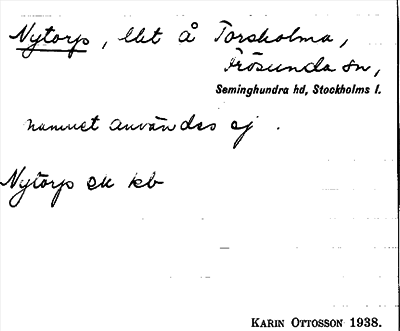 Nytorp, lht å Torsholma,
Frösunda sn,
Seminghundra hd, Stockholms l.
namnet användes ej.
Nytorp EK kb
KARIN OTTOSSON 1938.